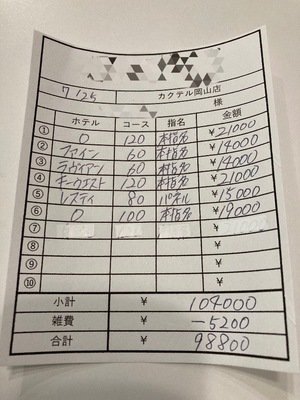 7/25 カクテル岡山店
様
ホテル コース 指名 金額
① O 120 本指名 ¥21000
② ファイン 60 本指名 ¥14000
③ ラヴィアン 60 本指名 ¥14000
④ キーウエスト 120 本指名 ¥21000
⑤ レスティ 80 パネル ¥15000
⑥ O 100 本指名 ¥19000
⑦
⑧
⑨
⑩
小計 ¥ 104000
雑費 ¥ -5200
合計 ¥ 98800